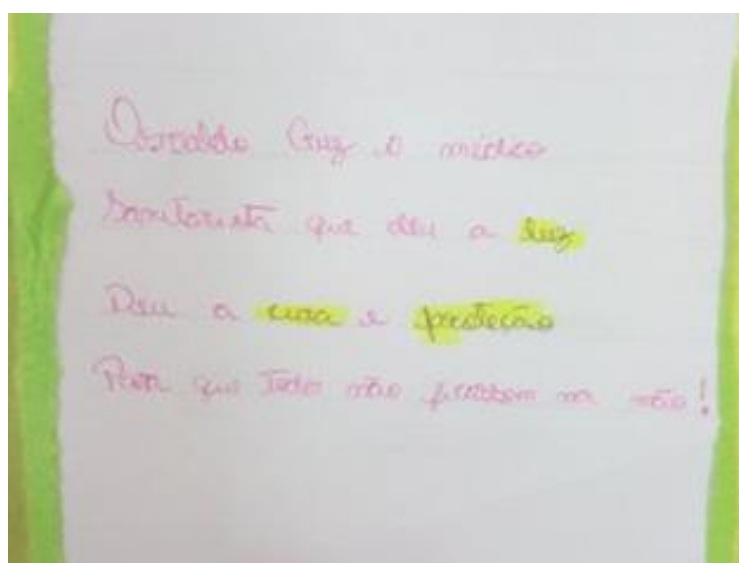 Osvaldo Cruz o médico
Sanitarista que deu a luz
Deu a cura e proteção
Para que todos não ficassem na mão!